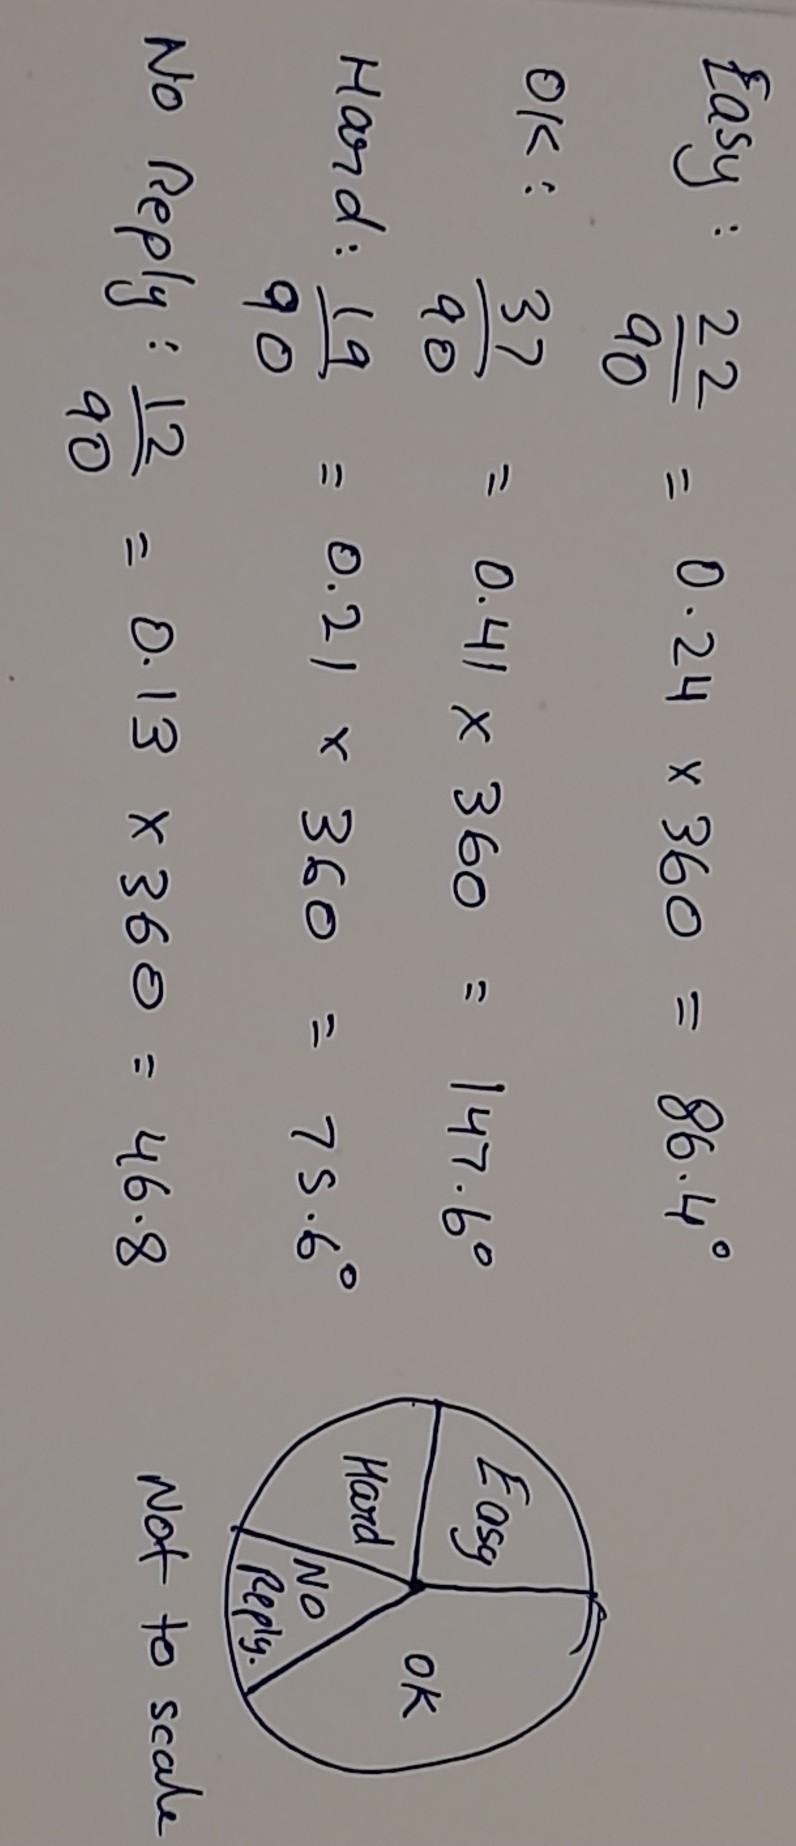 Easy : 22/90 = 0.24 x 360 = 86.4°
OK : 37/90 = 0.41 x 360 = 147.6°
Hard : 19/90 = 0.21 x 360 = 75.6°
No Reply : 12/90 = 0.13 x 360 = 46.8
Easy
OK
Hard
No
Reply.
Not to scale